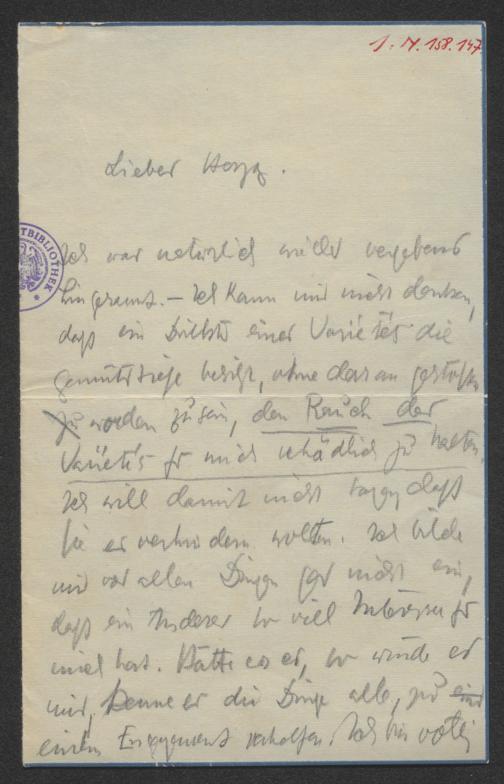 J. N. 158.147
Lieber Herzl.
TBIBLIOTHEK
Ich war natürlich wieder vergebens
hingerannt. – Ich kann mir nicht denken,
daß ein Direktor eines Varietés die
Gemütstiefe besitzt, ohne daran gestoßen
worden zu sein, den Rauch der
Varietés für mich schädlich zu halten.
Ich will damit nicht sagen, daß
Sie es verhindern wollten. Ich bilde
mir vor allen Dingen gar nicht ein,
daß ein Anderer so viel Interesse für
mich hat. Hätte er es, so würde er
mir, kenne er die Dinge alle, zu
einem Engagement verhelfen. Ich bin